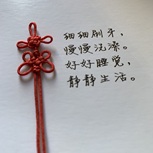 细细刷牙，
慢慢洗漆。
好好睡觉，
静静生活。